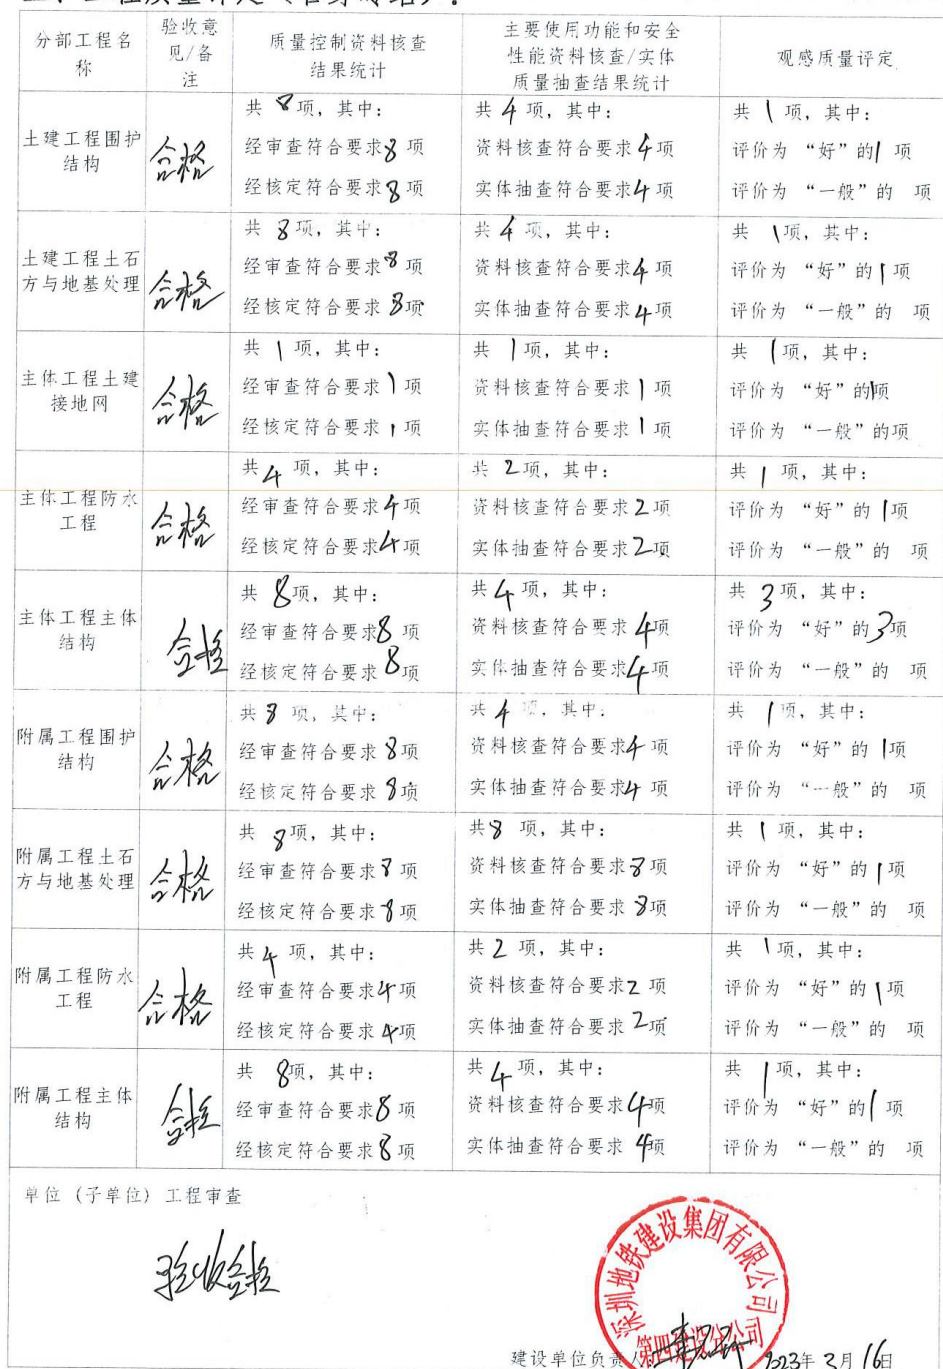 分部工程名称
验收意见/备注
质量控制资料核查结果统计
主要使用功能和安全性能资料核查/实体质量抽查结果统计
观感质量评定
土建工程围护结构
合格
共 8 项, 其中:
经审查符合要求8 项
经核定符合要求8 项
共 4 项, 其中:
资料核查符合要求4项
实体抽查符合要求4项
共 1 项, 其中:
评价为 “好”的1 项
评价为 “一般”的 项
土建工程土石方与地基处理
合格
共 8 项, 其中:
经审查符合要求8 项
经核定符合要求 8项
共 4 项, 其中:
资料核查符合要求4项
实体抽查符合要求4项
共 1项, 其中:
评价为 “好”的1项
评价为 “一般”的 项
主体工程土建接地网
合格
共 1 项, 其中:
经审查符合要求1 项
经核定符合要求 1项
共 1项, 其中:
资料核查符合要求1 项
实体抽查符合要求1 项
共 1项, 其中:
评价为 “好”的1项
评价为 “一般”的项
主体工程防水工程
合格
共4 项, 其中:
经审查符合要求4项
经核定符合要求4 项
共 2项, 其中:
资料核查符合要求2 项
实体抽查符合要求2项
共 1 项, 其中:
评价为 “好”的 1项
评价为 “一般”的 项
主体工程主体结构
合格
共 8项, 其中:
经审查符合要求8 项
经核定符合要求 8项
共4 项, 其中:
资料核查符合要求 4项
实体抽查符合要求4项
共 3项, 其中:
评价为 “好”的3项
评价为 “一般”的 项
附属工程围护结构
合格
共8 项, 其中:
经审查符合要求 8项
经核定符合要求 8项
共 4 项, 其中:
资料核查符合要求4 项
实体抽查符合要求4 项
共 1项, 其中:
评价为 “好”的 1项
评价为 “一般”的 项
附属工程土石方与地基处理
合格
共 8项, 其中:
经审查符合要求8 项
经核定符合要求 8项
共8 项, 其中:
资料核查符合要求8项
实体抽查符合要求 8项
共 1 项, 其中:
评价为 “好”的 1项
评价为 “一般”的 项
附属工程防水工程
合格
共4 项, 其中:
经审查符合要求4项
经核定符合要求 4项
共2 项, 其中:
资料核查符合要求2 项
实体抽查符合要求 2项
共 1项, 其中:
评价为 “好”的 1项
评价为 “一般”的 项
附属工程主体结构
合格
共 8项, 其中:
经审查符合要求8 项
经核定符合要求8 项
共4 项, 其中:
资料核查符合要求4项
实体抽查符合要求 4项
共 1项, 其中:
评价为 “好”的1 项
评价为 “一般”的 项
单位 (子单位) 工程审查
验收合格
深圳地铁建设集团有限公司
第四建设分公司
建设单位负责人
2023年 3月 16日